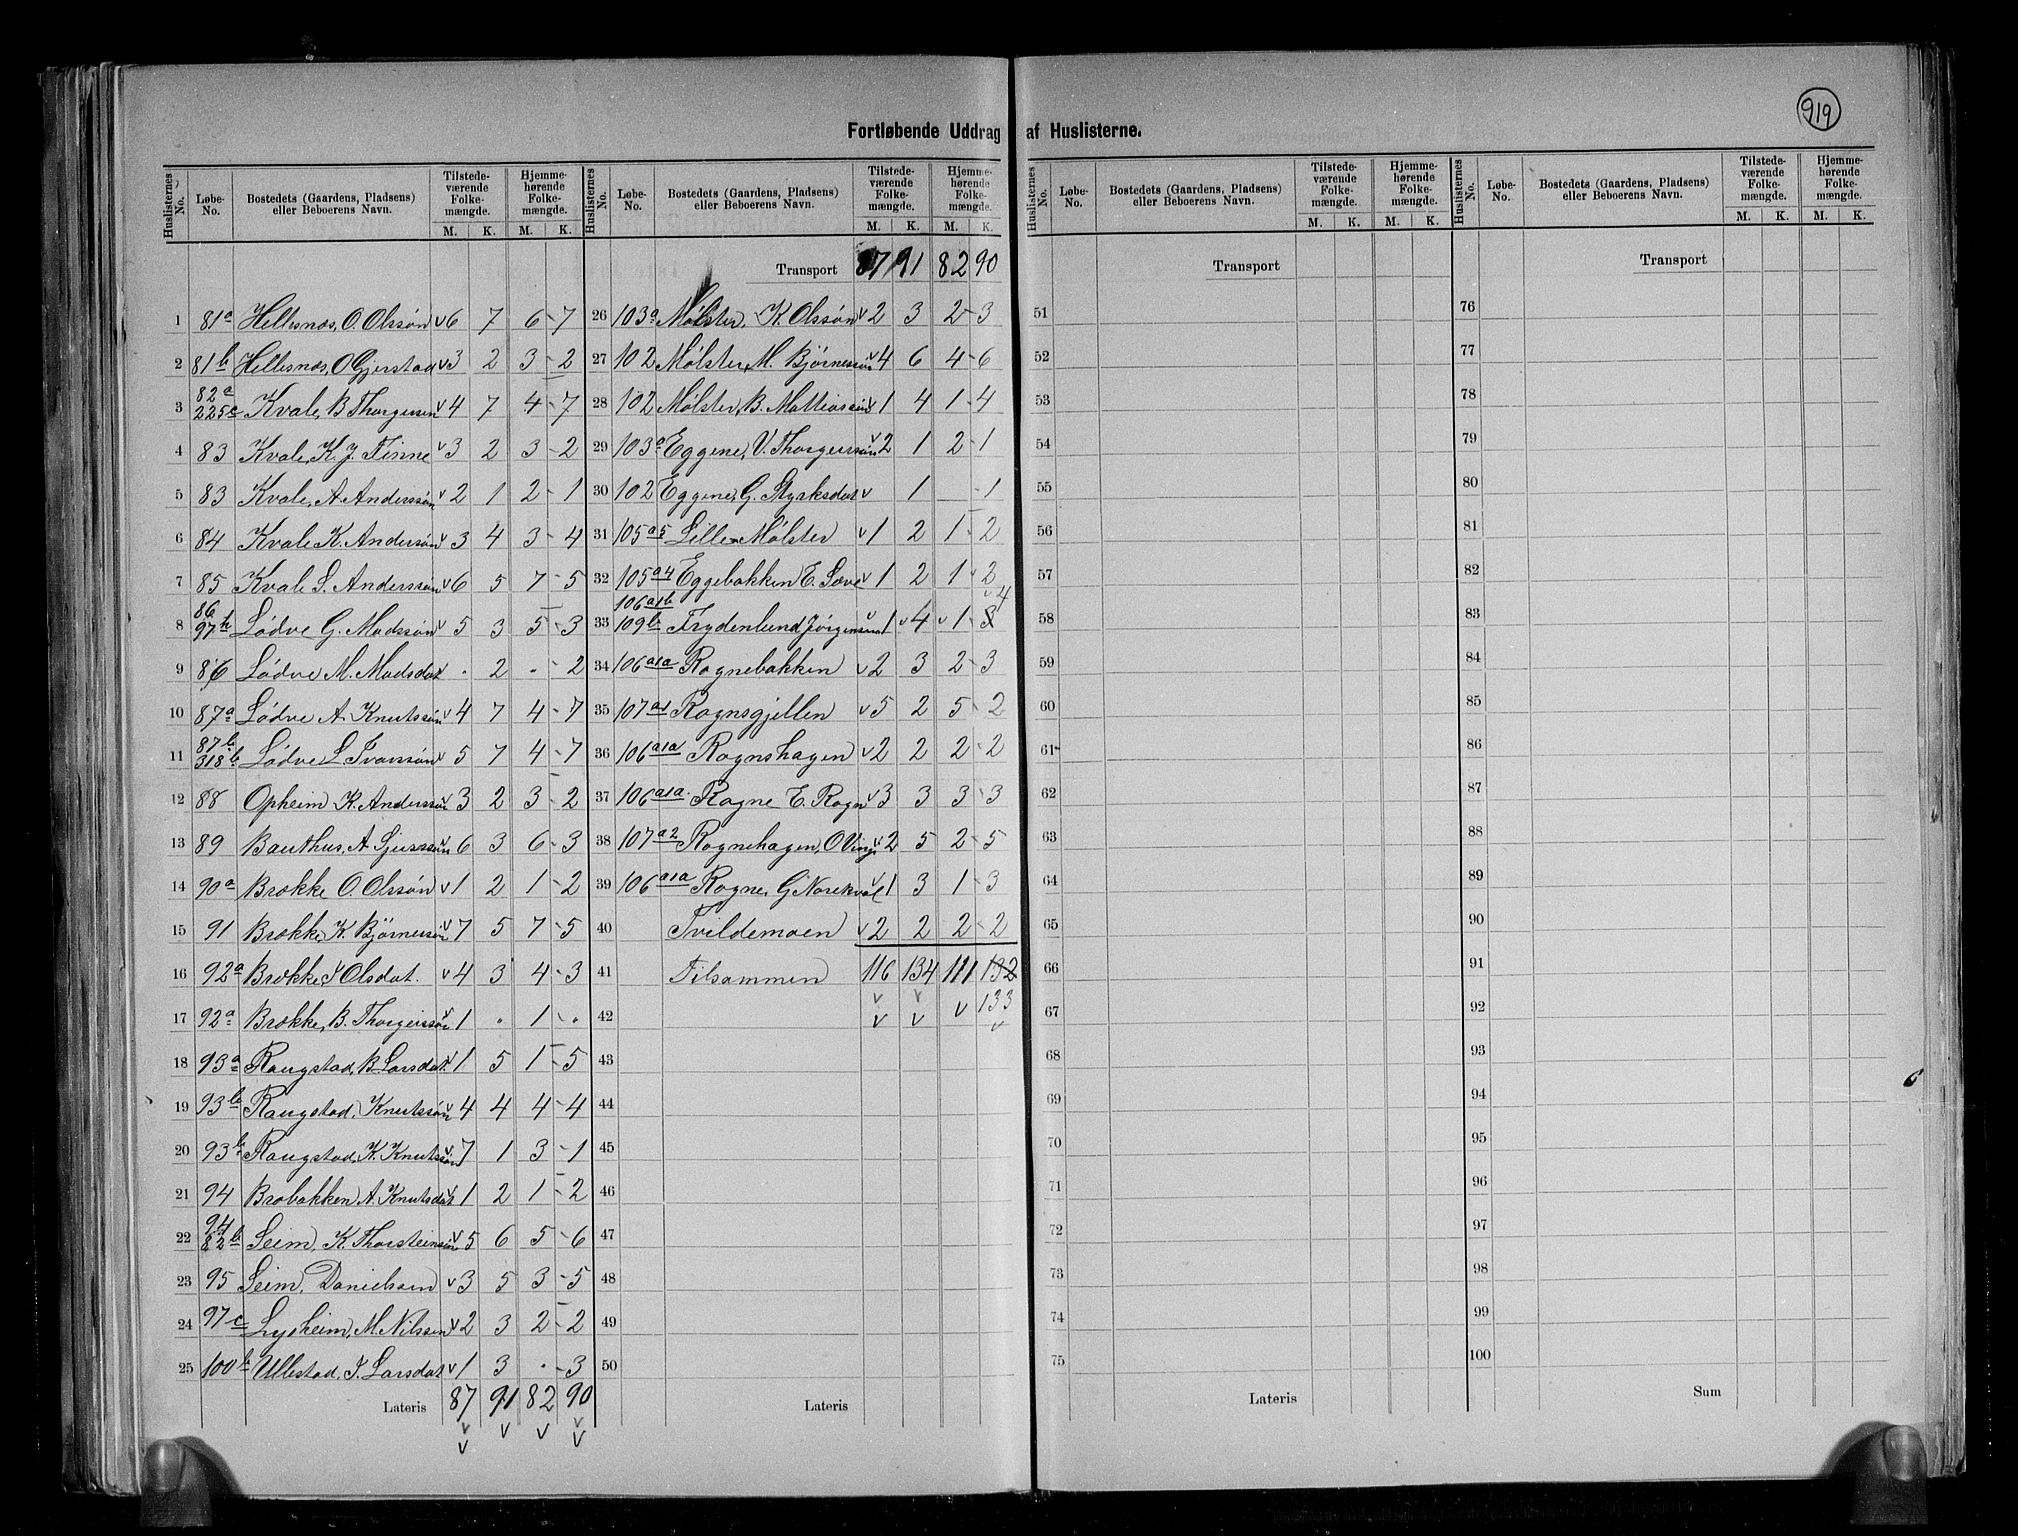 919
Fortløbende Uddrag af Huslisterne.
Huslisternes No. Løbe-No. Bostedets (Gaardens, Pladsens) eller Beboerens Navn. Tilstedeværende Folkemængde. M. K. Hjemmehørende Folkemængde. M. K.
1 81a Hellesnæs, O. Olssøn v 6 7 6 - 7
2 81b Hellesnæs, O Gjerstad v 3 2 3 - 2
3 82a 225c Kvale, B Thorgersen v 4 7 4 - 7
4 83 Kvale, K. J. Finne v 3 2 3 - 2
5 83 Kvale, A Anderssøn v 2 1 2 - 1
6 84 Kvale K. Anderssøn v 3 4 3 - 4
7 85 Kvale S. Anderssøn v 6 5 7 - 5
8 86 97h Lødve G. Madssøn v 5 3 5 - 3
9 86 Lødve M. Madsdat v . 2 . - 2
10 87a Lødve A. Knutssøn v 4 7 4 - 7
11 87b 318b Lødve L Ivarssøn v 5 7 4 - 7
12 88 Opheim K. Anderssøn v 3 2 3 - 2
13 89 Bauthus, A Sjurssøn v 6 3 6 - 3
14 90a Brække O. Olssøn v 1 2 1 - 2
15 91 Brække, K. Bjørnessøn v 7 5 7 - 5
16 92a Brække, Olsdat. v 4 3 4 - 3
17 92a Brække, B. Thorgeirssøn v 1 . 1 - .
18 93a Raugstad, B. Larsdat. v 1 5 1 - 5
19 93b Raugstad, Knutssøn v 4 4 4 - 4
20 93b Raugstad, K. Knutssøn v 7 1 3 - 1
21 94 Brobakken A. Knutsdat v 1 2 1 - 2
22 94 82b Seim, K. Thorsteinssøn v 5 6 5 - 6
23 95 Seim, Danielsen v 3 5 3 - 5
24 97c Lysheim, M. Nilssen v 2 3 2 - 2
25 100b Ullestad, I. Larsdat v 1 3 . - 3
Lateris 87 91 82 90
v v v v
v v
Huslisternes No. Løbe-No. Bostedets (Gaardens, Pladsens) eller Beboerens Navn. Tilstedeværende Folkemængde. M. K. Hjemmehørende Folkemængde. M. K.
Transport 87 91 82 90
26 103a Mølster, K. Olssøn v 2 3 2 - 3
27 102 Mølster, M. Bjørnessøn v 4 6 4 - 6
28 102 Mølster, B. Mattiassøn v 1 4 1 - 4
29 103a Eggene, V. Thorgerssøn v 2 1 2 - 1
30 102 Eggene, G. Styrksdat v 1 - 1
31 105a5 Lille Mølster v 1 2 1 - 2
32 105a4 Eggebakken E. Sæve v 1 2 1 - 2
33 106a1b 109b Frydenlund Jørgensen v 1 v 4 v 1 - 3 v 4
34 106a1a Rognebakken v 2 3 2 - 3
35 107a1 Rognsgjellen v 5 2 5 - 2
36 106a1a Rognshagen v 2 2 2 - 2
37 106a1a Rogne E. Rogn v 3 3 3 - 3
38 107a2 Rognehagen, O Vinje v 2 5 2 - 5
39 106a1a Rogne, G Norekvål v 1 3 1 - 3
40 Tvildemoen v 2 2 2 - 2
41 Tilsammen 116 134 111 132
42 v v v 133
v v v
43
44
45
46
47
48
49
50
Lateris
Huslisternes No. Løbe-No. Bostedets (Gaardens, Pladsens) eller Beboerens Navn. Tilstedeværende Folkemængde. M. K. Hjemmehørende Folkemængde. M. K.
Transport
51
52
53
54
55
56
57
58
59
60
61
62
63
64
65
66
67
68
69
70
71
72
73
74
75
Lateris
Huslisternes No. Løbe-No. Bostedets (Gaardens, Pladsens) eller Beboerens Navn. Tilstedeværende Folkemængde. M. K. Hjemmehørende Folkemængde. M. K.
Transport
76
77
78
79
80
81
82
83
84
85
86
87
88
89
90
91
92
93
94
95
96
97
98
99
100
Sum